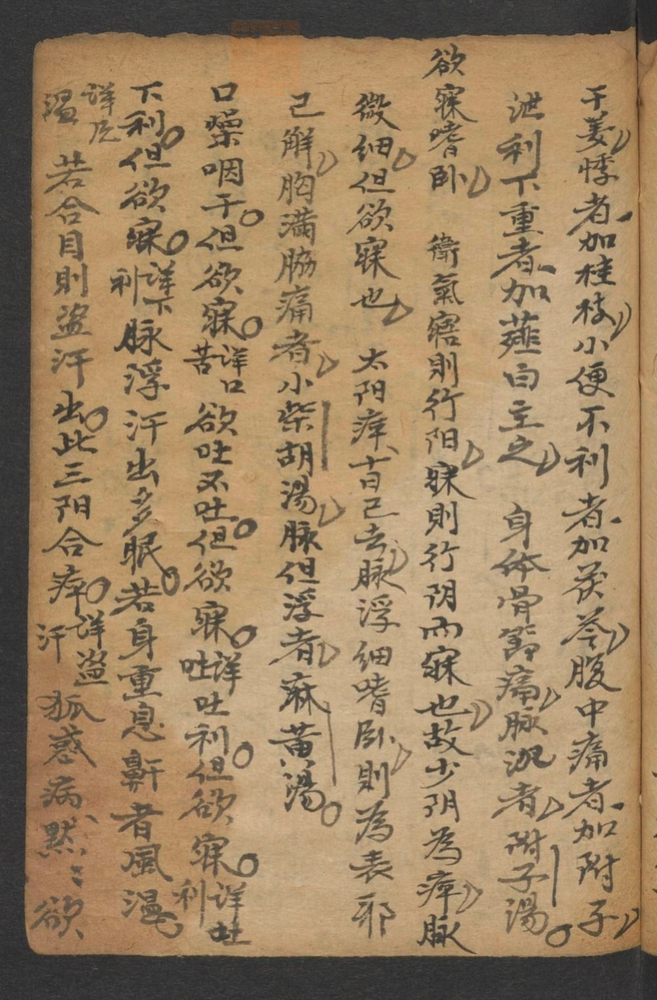 干姜悸者加桂枝小便不利者加茯苓腹中痛者加附子
泄利下重者加薤白主之 身体骨節痛脉沉者附子湯
欲寐嗜卧 衛氣寤則行阳寐則行阴而寐也故少阴為病脉
微细但欲寐也 太阳病十日已去脉浮细嗜卧則為表邪
已解胸满脇痛者小柴胡湯脉但浮者麻黄湯
口燥咽干但欲寐詳口苦欲吐不吐但欲寐詳吐吐利但欲寐詳吐利
下利但欲寐詳下利脉浮汗出多眠若身重息鼾者風温
詳風温 若合目則盗汗出此三阳合病詳盗汗 狐惑病默〻欲